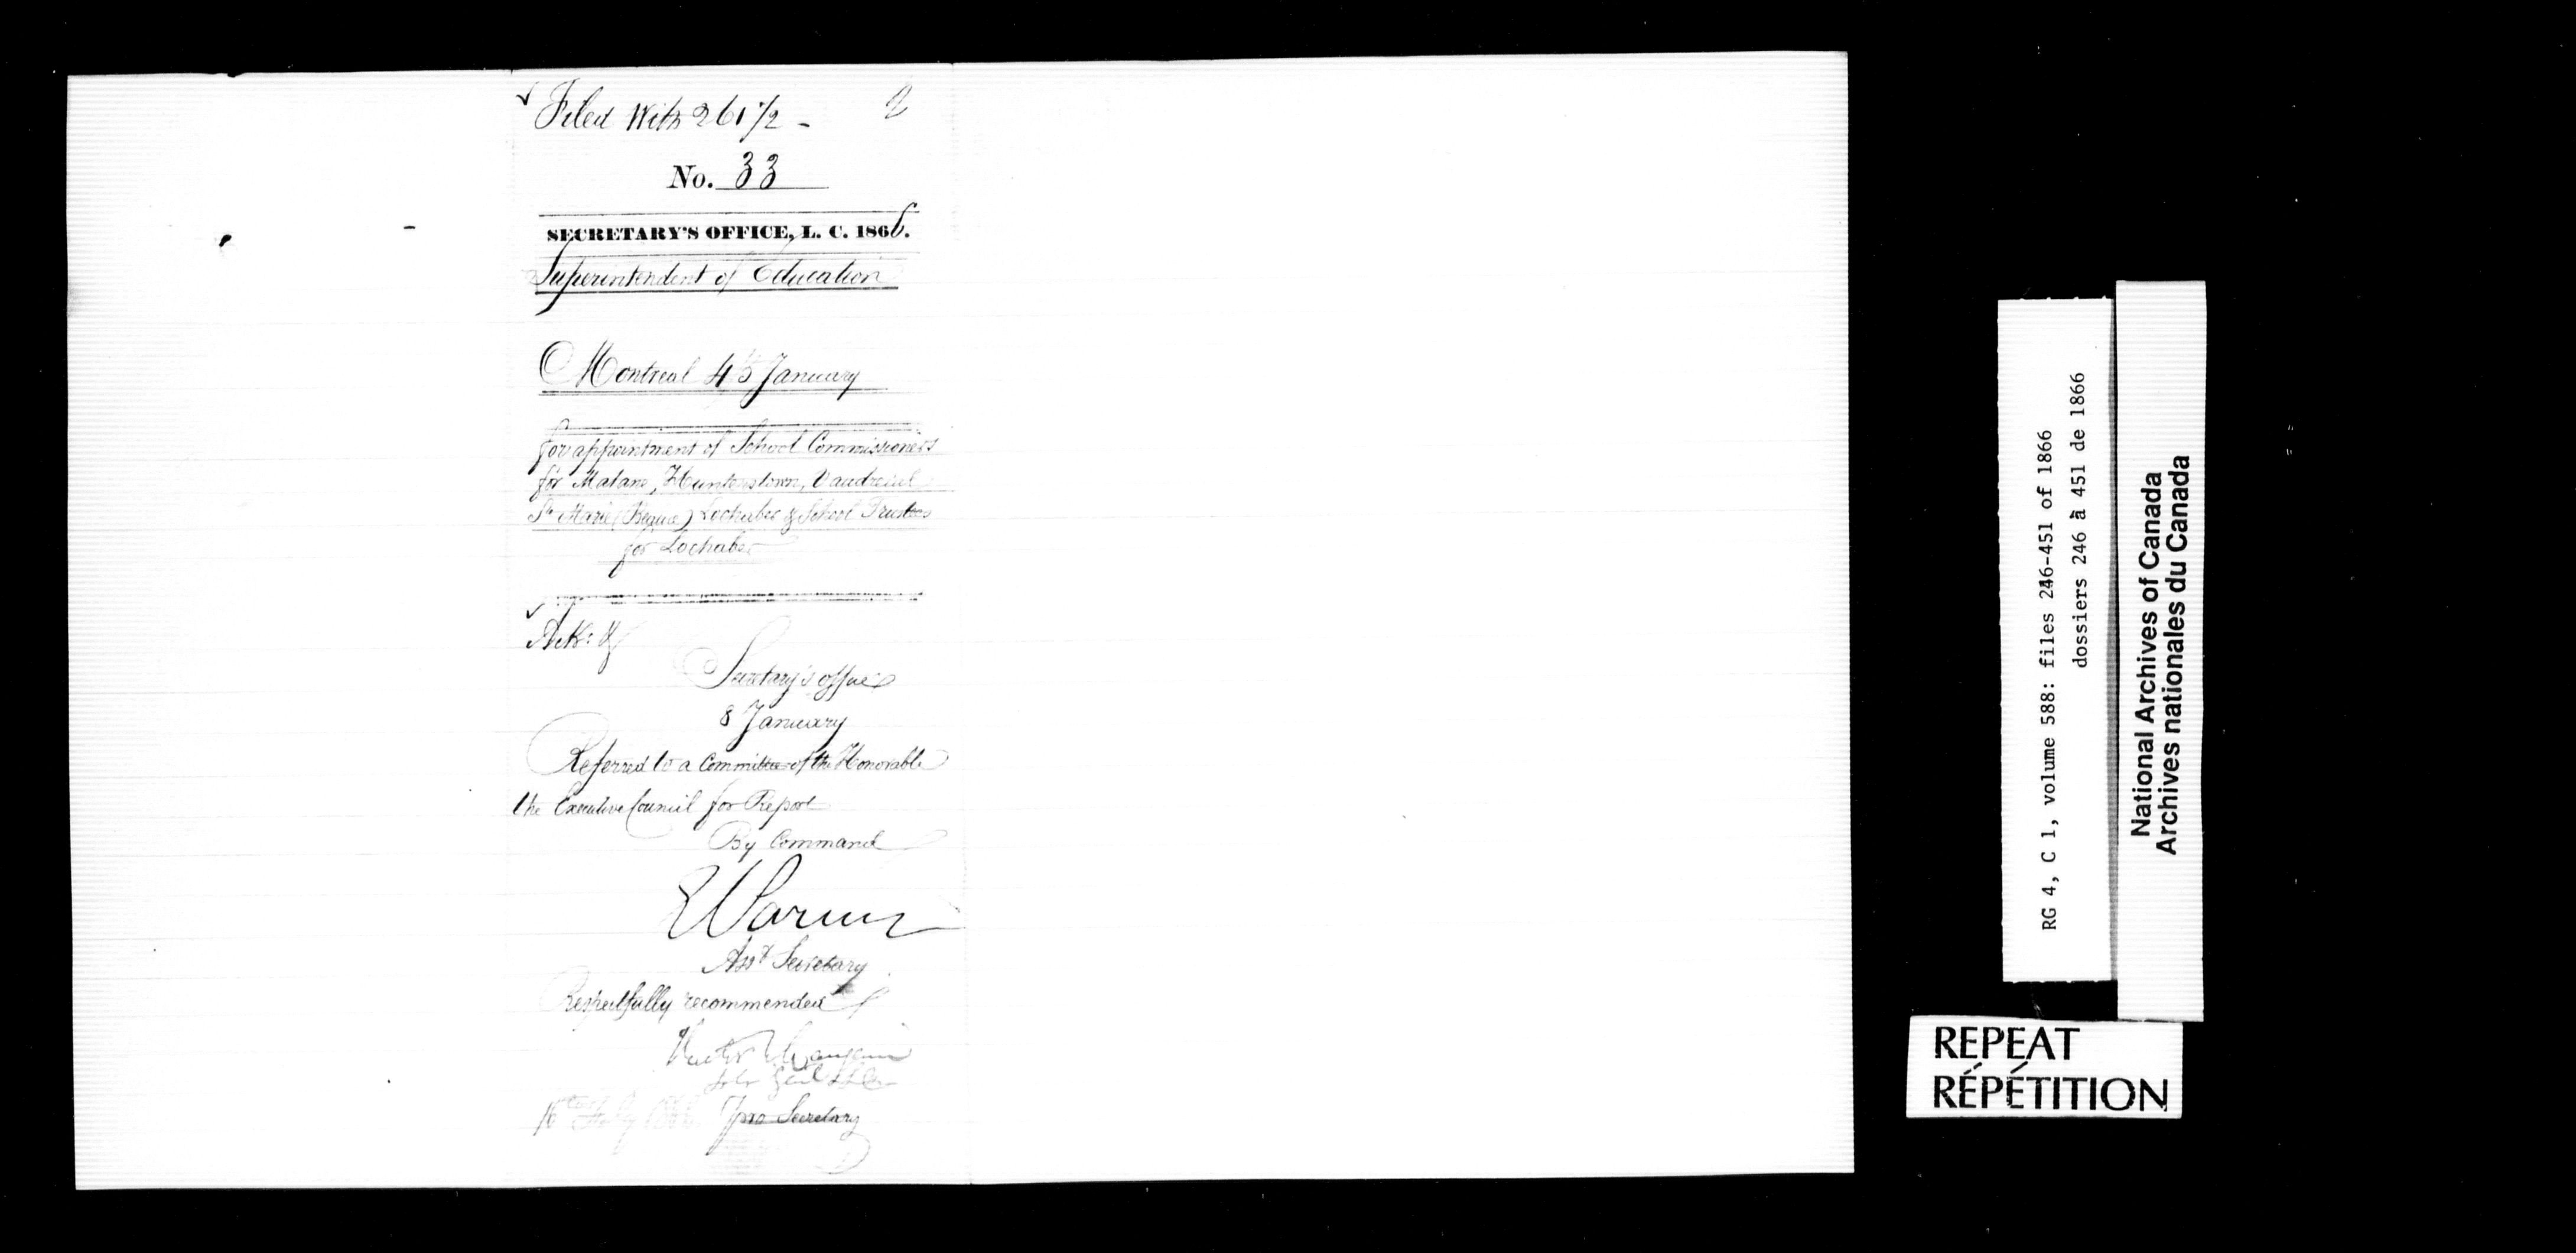 Filed With 261 1/2 - 2
No. 33
SECRETARY'S OFFICE, L. C. 1866.
Superintendent of Education
Montreal 4 January
for appointment of School Commissioners
for Matane, Hunterstown, Vaudreuil
Ste Marie (Beauce) Lochaber & School Trustees
for Lochaber
Secretary's office
8 January
Referred to a Committee of the Honorable
the Executive Council for Report
By Command
Asst Secretary
Respectfully recommended
pro Secretary
RG 4, C 1, volume 588: files 246-451 of 1866
dossiers 246 à 451 de 1866
National Archives of Canada
Archives nationales du Canada
REPEAT
RÉPÉTITION